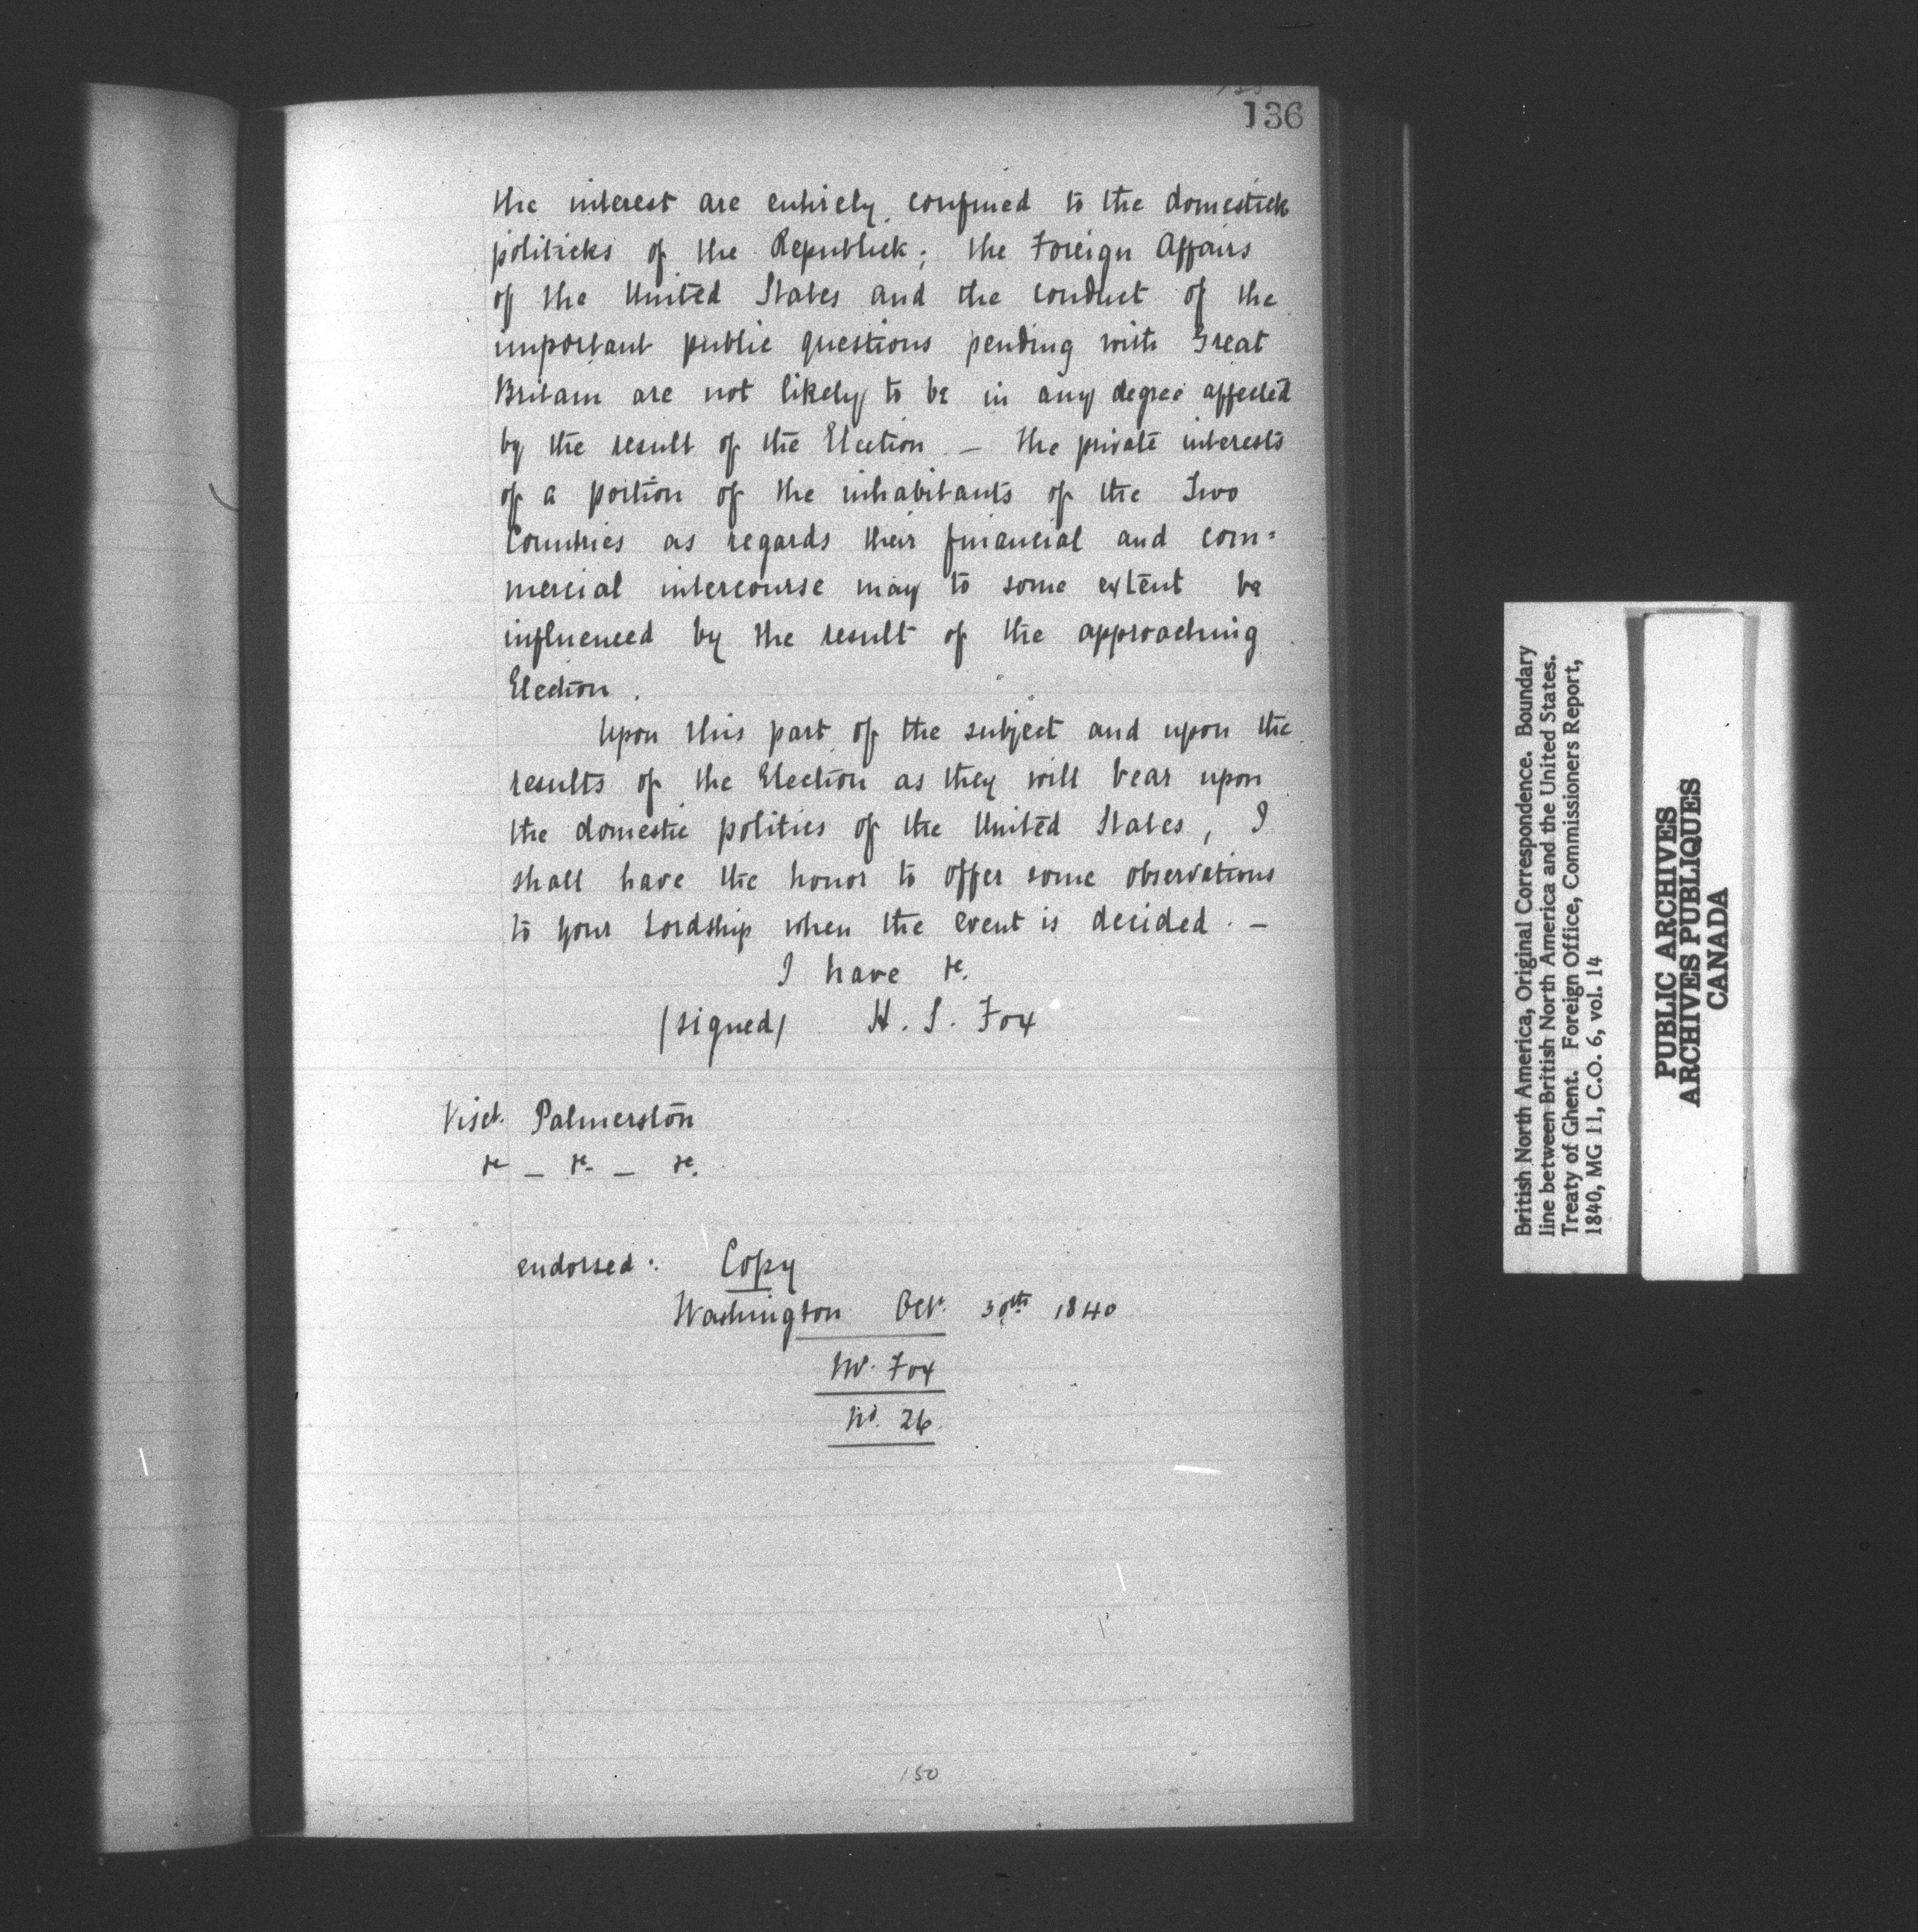 136
the interest are entirely confined to the domestick
politicks of the Republick; the Foreign Affairs
of the United States and the conduct of the
important public questions pending with Great
Britain are not likely to be in any degree affected
by the result of the Election — the private interests
of a portion of the inhabitants of the Two
Countries as regards their financial and com=
mercial intercourse may to some extent be
influenced by the result of the approaching
Election.
Upon this part of the subject and upon the
results of the Election as they will bear upon
the domestic politics of the United States, I
shall have the honor to offer some observations
to your Lordship when the event is decided. —
I have &c.
(signed) H. S. Fox
Visct. Palmerston
&c — &c — &c.
endorsed: Copy
Washington Oct. 30th 1840
Mr. Fox
No. 26.
150
British North America, Original Correspondence. Boundary
line between British North America and the United States.
Treaty of Ghent. Foreign Office, Commissioners Report,
1840, MG 11, C.O. 6, vol. 14
PUBLIC ARCHIVES
ARCHIVES PUBLIQUES
CANADA